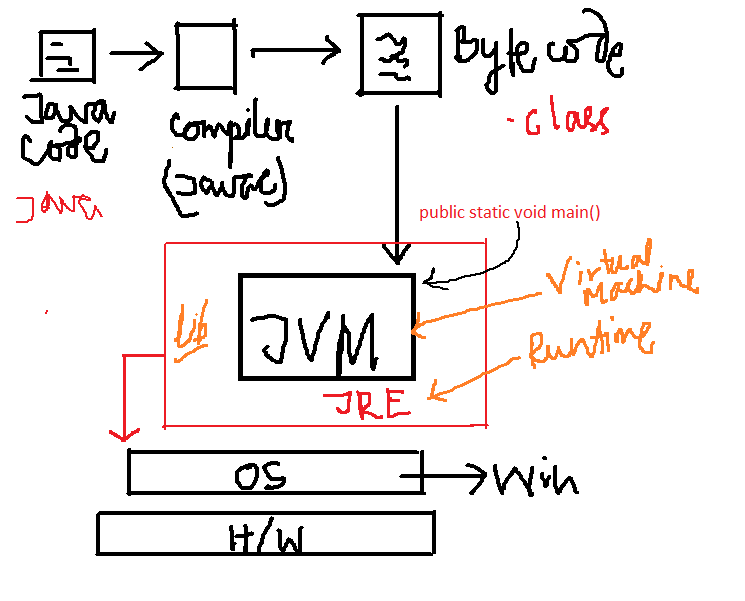 Java
code
Java
compiler
(Javac)
Byte code
.class
public static void main()
Virtual
Machine
Runtime
Lib
JVM
JRE
OS
Win
H/W